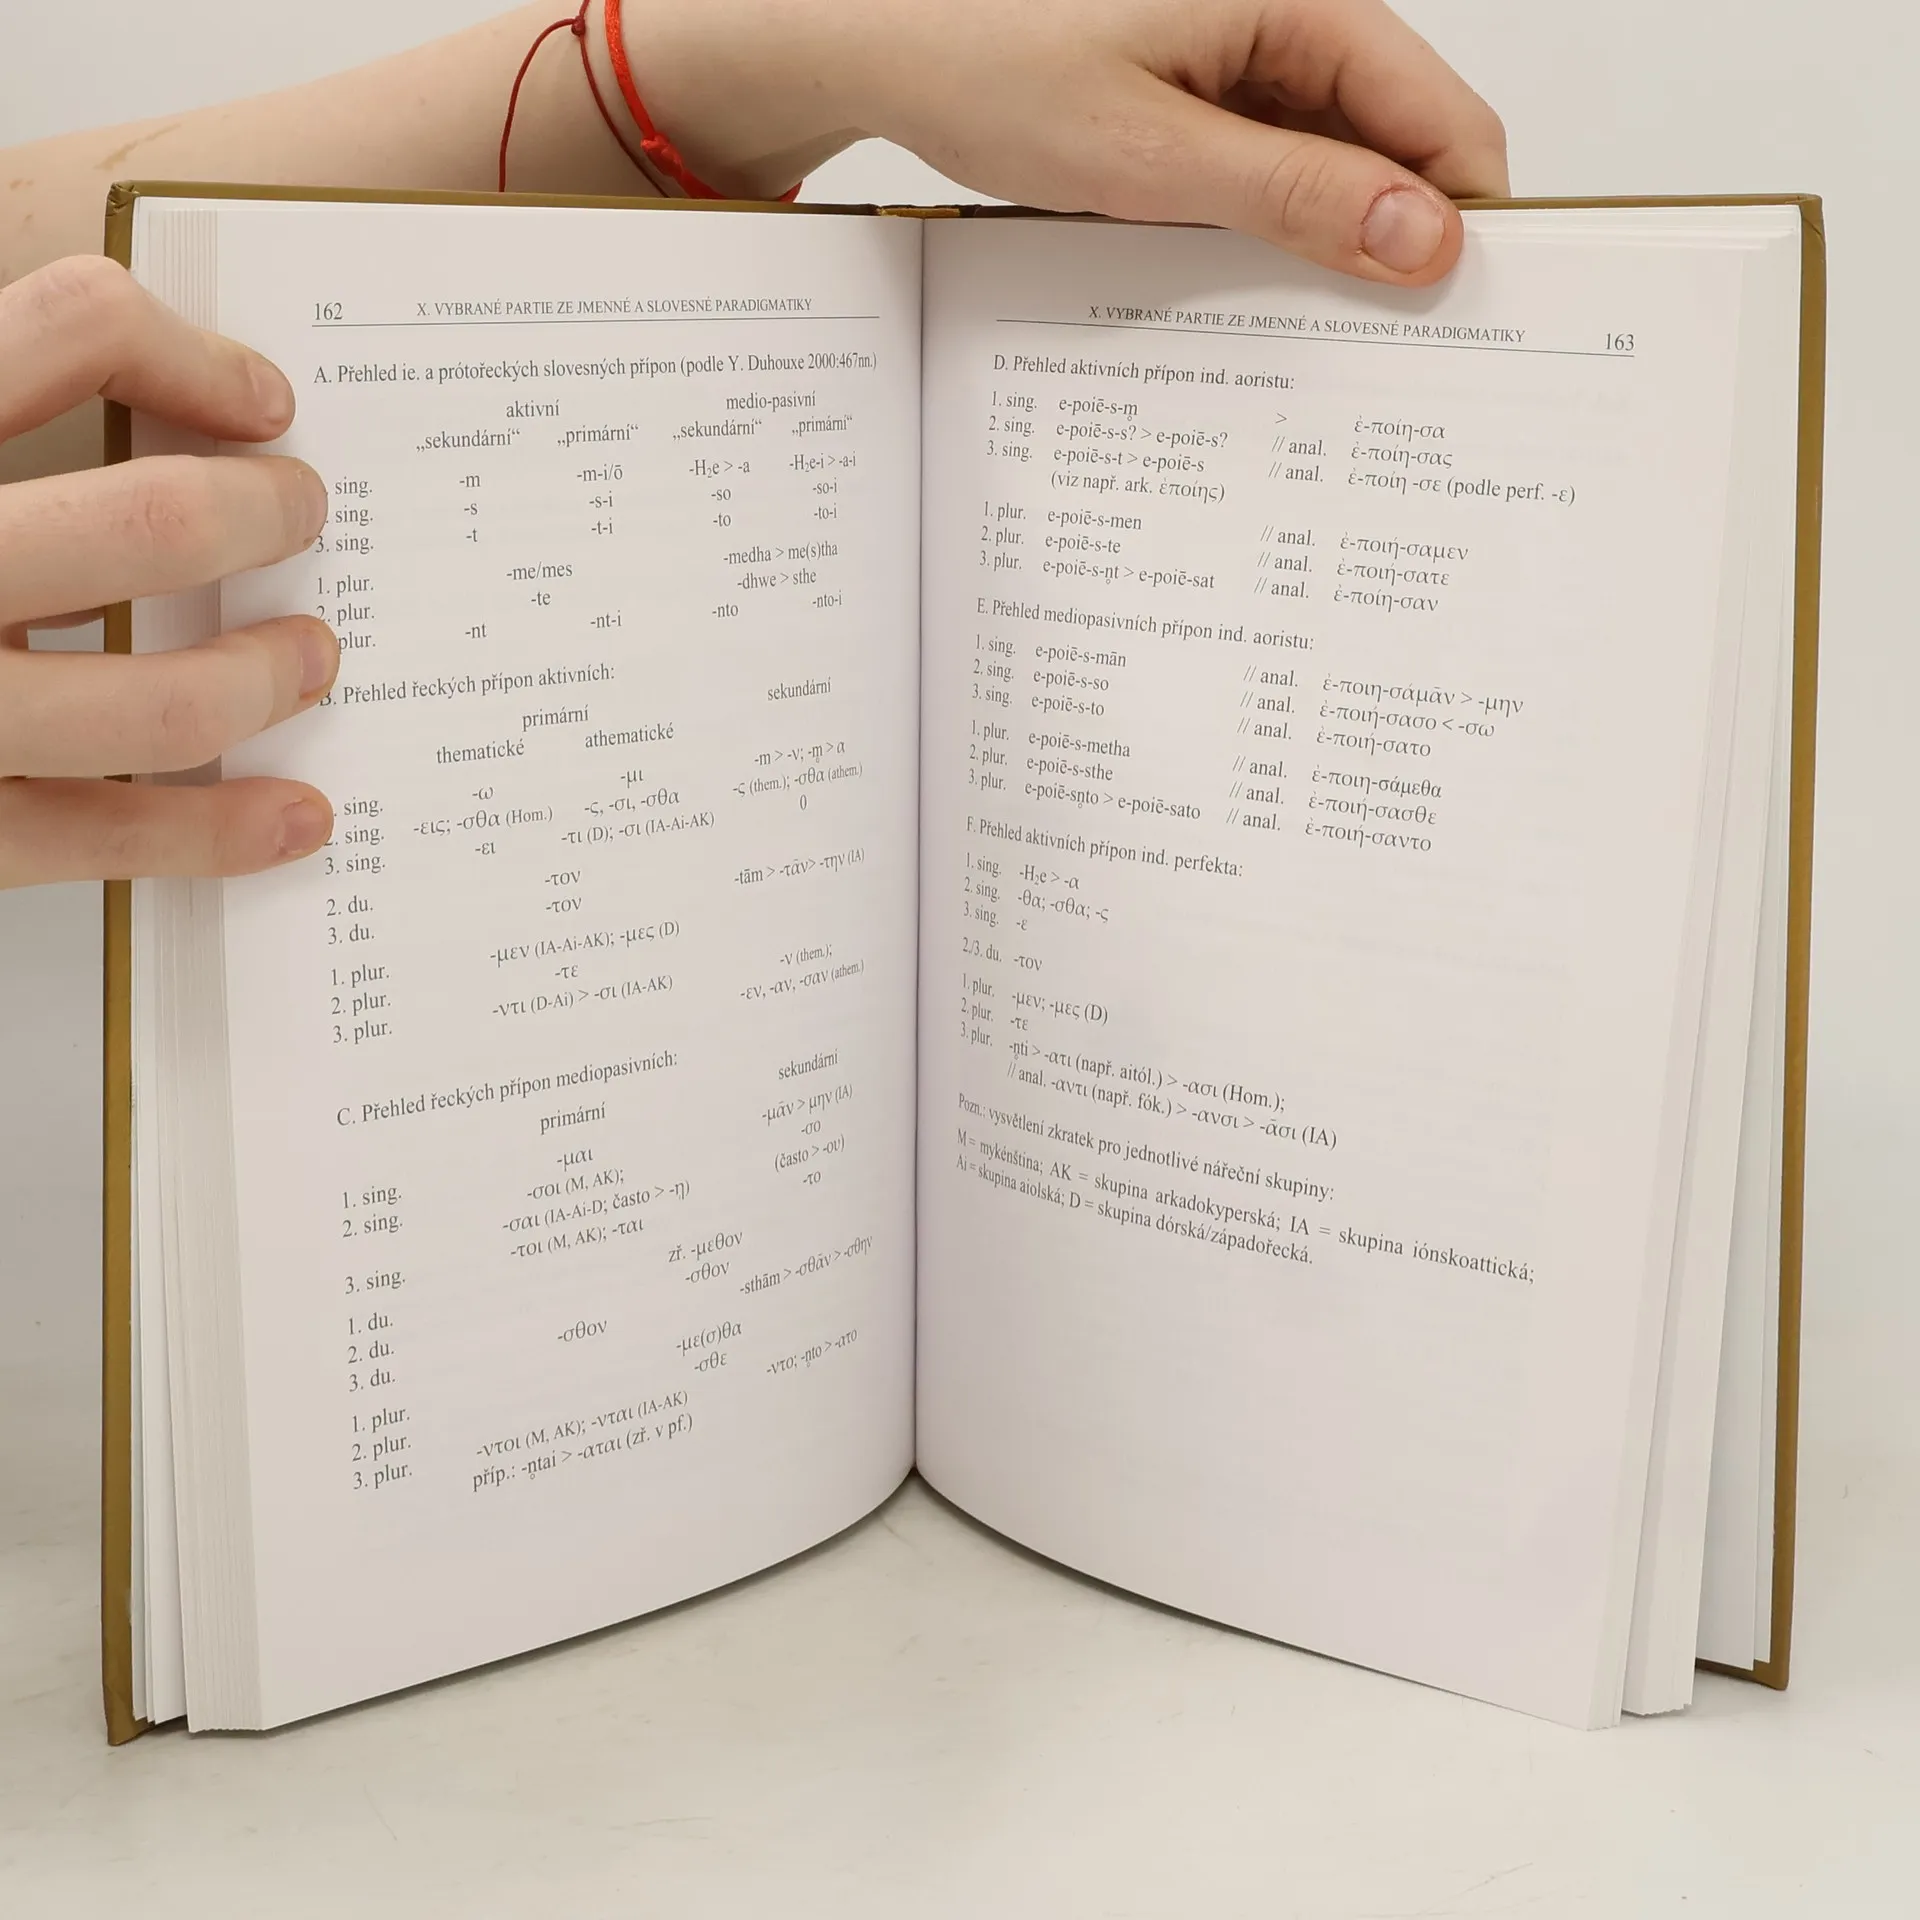 162 X. VYBRANÉ PARTIE ZE JMENNÉ A SLOVESNÉ PARADIGMATIKY
A. Přehled ie. a prótořeckých slovesných přípon (podle Y. Duhouxe 2000:467nn.)
aktivní medio-pasivní
„sekundární“ „primární“ „sekundární“ „primární“
. sing. -m -m-i/ō -H₂e > -a -H₂e-i > -a-i
. sing. -s -s-i -so -so-i
3. sing. -t -t-i -to -to-i
1. plur. -me/mes -medha > me(s)tha
2. plur. -te -dhwe > sthe
plur. -nt -nt-i -nto -nto-i
B. Přehled řeckých přípon aktivních:
primární sekundární
thematické athematické
. sing. -ω -μι -m > -ν; -m̥ > α
2. sing. -εις; -σθα (Hom.) -ς, -σι, -σθα -ς (them.); -σθα (athem.)
3. sing. -ει -τι (D); -σι (IA-Ai-AK) 0
2. du. -τον
3. du. -τον -tām > -τᾱν > -την (IA)
1. plur. -μεν (IA-Ai-AK); -μες (D)
2. plur. -τε
3. plur. -ντι (D-Ai) > -σι (IA-AK) -ν (them.);
-εν, -αν, -σαν (athem.)
C. Přehled řeckých přípon mediopasivních:
primární sekundární
1. sing. -μαι -μᾱν > μην (IA)
2. sing. -σοι (M, AK); -σο
-σαι (IA-Ai-D; často > -ῃ) (často > -ου)
3. sing. -τοι (M, AK); -ται -το
1. du. zř. -μεθον
2. du. -σθον
3. du. -σθον -sthām > -σθᾱν > -σθην
1. plur. -με(σ)θα
2. plur. -σθε
3. plur. -ντοι (M, AK); -νται (IA-AK) -ντο; -n̥to > -ατο
příp.: -n̥tai > -αται (zř. v pf.)
X. VYBRANÉ PARTIE ZE JMENNÉ A SLOVESNÉ PARADIGMATIKY 163
D. Přehled aktivních přípon ind. aoristu:
1. sing. e-poiē-s-m̥ > ἐ-ποίη-σα
2. sing. e-poiē-s-s? > e-poiē-s? // anal. ἐ-ποίη-σας
3. sing. e-poiē-s-t > e-poiē-s // anal. ἐ-ποίη -σε (podle perf. -ε)
(viz např. ark. ἐποίης)
1. plur. e-poiē-s-men // anal. ἐ-ποιή-σαμεν
2. plur. e-poiē-s-te // anal. ἐ-ποιή-σατε
3. plur. e-poiē-s-n̥t > e-poiē-sat // anal. ἐ-ποίη-σαν
E. Přehled mediopasivních přípon ind. aoristu:
1. sing. e-poiē-s-mān // anal. ἐ-ποιη-σάμᾱν > -μην
2. sing. e-poiē-s-so // anal. ἐ-ποιή-σασο < -σω
3. sing. e-poiē-s-to // anal. ἐ-ποιή-σατο
1. plur. e-poiē-s-metha // anal. ἐ-ποιη-σάμεθα
2. plur. e-poiē-s-sthe // anal. ἐ-ποιή-σασθε
3. plur. e-poiē-sn̥to > e-poiē-sato // anal. ἐ-ποιή-σαντο
F. Přehled aktivních přípon ind. perfekta:
1. sing. -H₂e > -α
2. sing. -θα; -σθα; -ς
3. sing. -ε
2./3. du. -τον
1. plur. -μεν; -μες (D)
2. plur. -τε
3. plur. -n̥ti > -ατι (např. aitól.) > -ασι (Hom.);
// anal. -αντι (např. fók.) > -ανσι > -ᾱσι (IA)
Pozn.: vysvětlení zkratek pro jednotlivé nářeční skupiny:
M = mykénština; AK = skupina arkadokyperská; IA = skupina iónskoattická;
Ai = skupina aiolská; D = skupina dórská/západořecká.